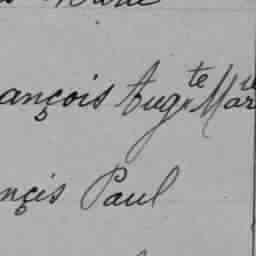 ançois Aug.te Mar
nçis Paul